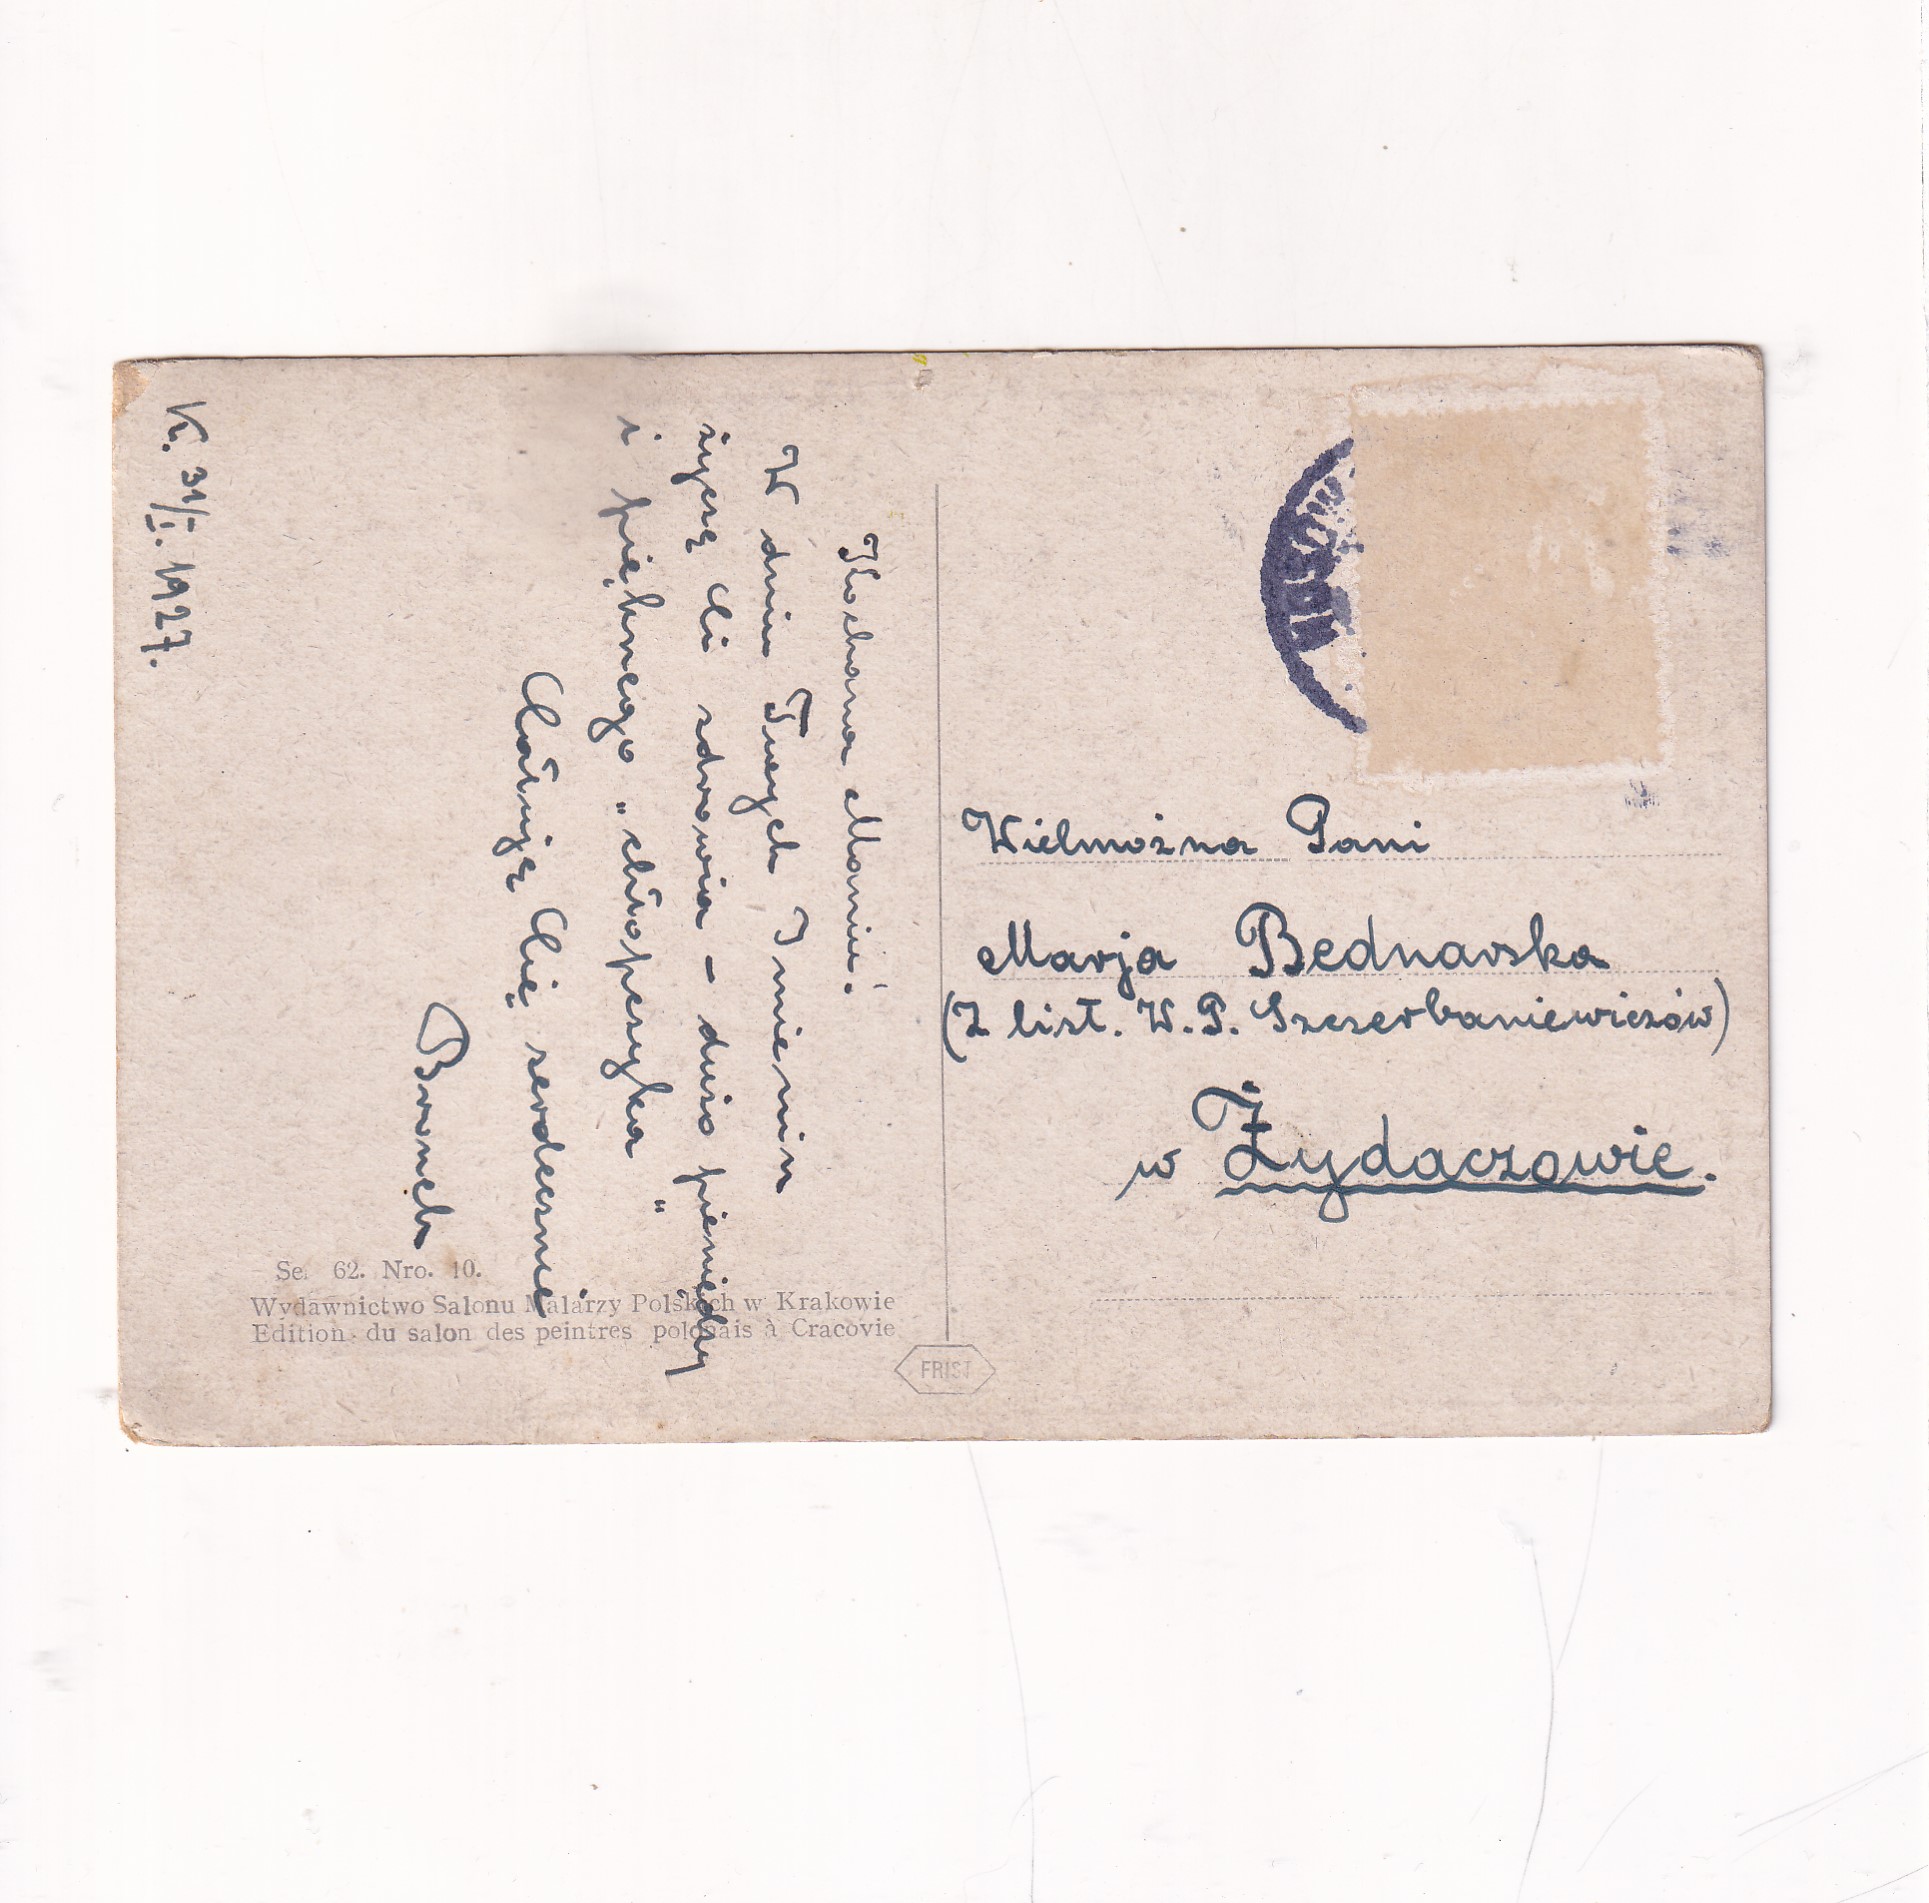 K. 31/I. 1927.
Kochana Maniu!
W dniu Twych Imienin
życzę Ci zdrowia – dużo pieniędzy
i pięknego „chłopczyka"
Całuję Cię serdecznie
Bronek
Wielmożna Pani
Marja Bednarska
(Z list. W. P. Szczerbaniewiczów)
w Żydaczowie.
Se. 62. Nro. 10.
Wydawnictwo Salonu Malarzy Polskich w Krakowie
Edition du salon des peintres polonais à Cracovie
FRIST